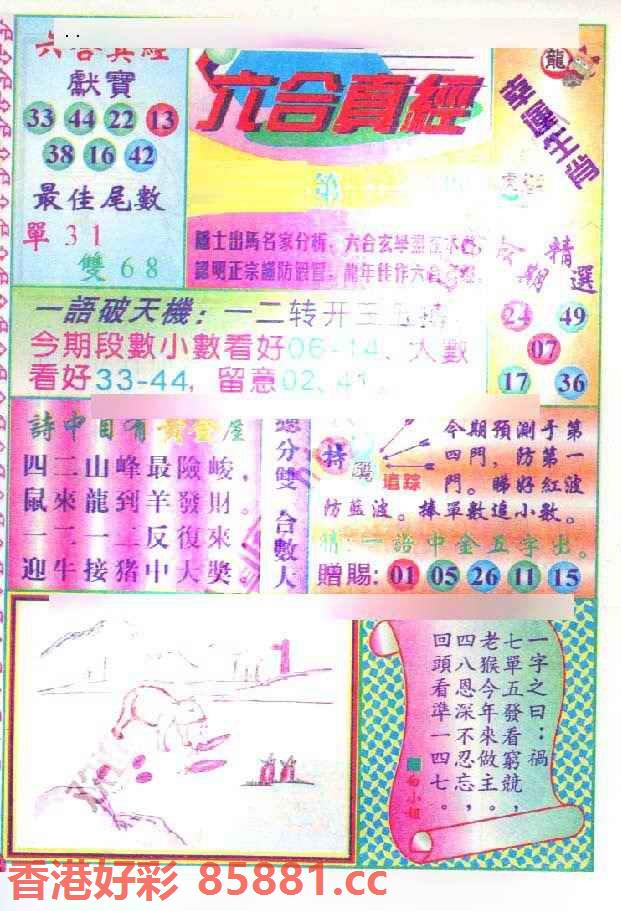 六合真經
獻寶
33 44 22 13
38 16 42
最佳尾數
單31
雙68
六合真經
龍
隱士出馬名家分析，六合玄學盡在本
認明正宗謹防假冒，龍年佳作六合
期
精選
24 49
07
17 36
一語破天機：一二转开三五
今期段數小數看好06-14、大數
看好33-44，留意02、41
詩中自有黃金屋
四二山峰最險峻，
鼠來龍到羊發財。
一二一二反復來
迎牛接猪中大獎。
總分雙 合數大
特
追踪
今期預測于第
四門，防第一
門。睇好紅波
防藍波。捧單數追小數。
猜：一語中金五字出。
贈賜：01 05 26 11 15
1
一字之曰：禍
七單五發看窮競，
老猴今年來做主。
四八恩深不忍忘，
回頭看準一四七。
白小姐
香港好彩 85881.cc